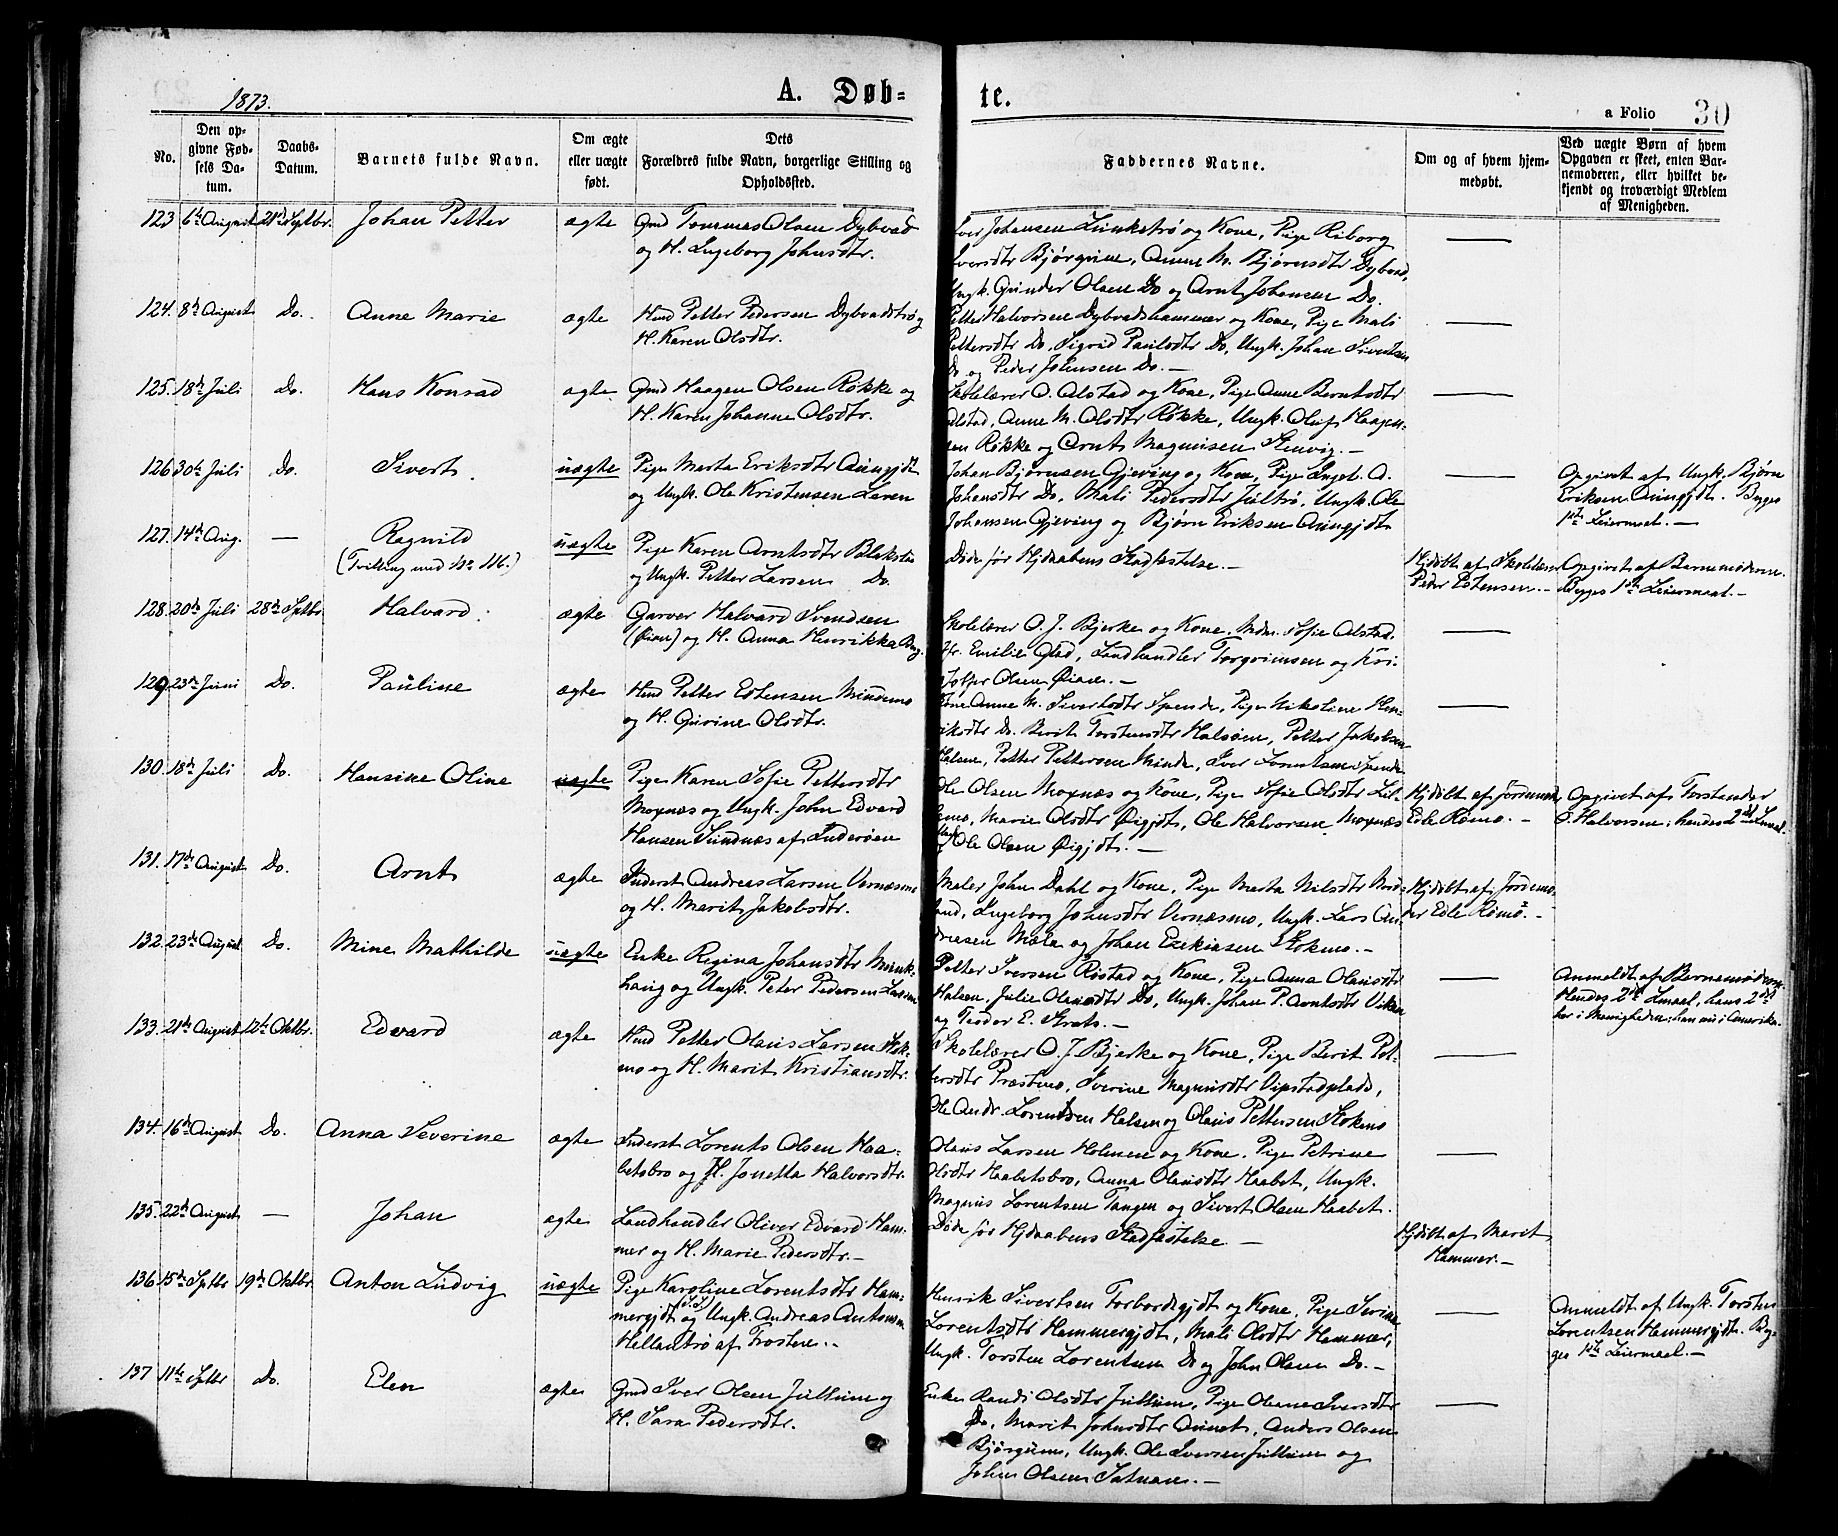 1873.
A. Døb-
te.
a Folio 30
No.
Den op-
givne Fød-
sels Da-
tum.
Daabs-
Datum.
Barnets fulde Navn.
Om ægte
eller uægte
født.
Dets
Forældres fulde Navn, borgerlige Stilling og
Opholdssted.
Faddernes Navne.
Om og af hvem hjem-
medøbt.
Ved uægte Børn af hvem
Opgaven er skeet, enten Bar-
nemoderen, eller hvilket be-
kjendt og troværdigt Medlem
af Menigheden.
123 6te August 21de Septbr. Johan Petter ægte Gmd Tommas Olsen Dybvad
og H. Ingeborg Johnsdtr.
Iver Johansen Linkstrø og Kone, Pige Riborg
Iversdtr Bjørgum, Anne M. Bjørnsdtr Dybvad,
Ungk. Gunder Olsen Do og Arnt Johansen Do.
124. 8de August Do. Anne Marie ægte Hmd Petter Pedersen Dybvadstrø og
H. Karen Olsdtr.
Petter Halvorsen Dybvadshammer og Kone, Pige Mali
Pettersdtr Do, Sigrid Paulsdtr Do, Ungk. Johan Sivertsen
Do og Peder Johnsen Do. —
125. 18de Juli Do. Hans Konrad ægte Gmd Haagen Olsen Røkke og
H. Karen Johanne Olsdtr.
Skolelærer O. Alstad og Kone, Pige Anne Berntsdtr
Alstad, Anne M. Olsdtr Røkke, Ungk. Oluf Haagen-
sen Røkke og Arnt Magnusen Stenvig. —
126 30te Juli Do. Sivert. uægte Pige Marta Eriksdtr
og Ungk. Ole Kristensen Laren
Johan Bjørnsen Gjeving og Kone, Pige Ingeb. A.
Johansdtr Do, Mali Pedersdtr Jultrø, Ungk. Ole
Johansen Gjeving og Bjørn Eriksen
Opgivet af Ungk. Bjørn
Eriksen Begges
1ste Leiermaal. —
127. 14de Aug. — Ragnild
(Tvilling med No 116.)
uægte Pige Karen Arntsdtr
og Ungk. Petter Larsen Do.
Døde før Hjdaabens Stadfæstelse. —
Hjdøbt af Skolelærer
Peder Estensen. —
Opgivet af Barnemoderen.
Begges 1ste Leiermaal. —
128. 20de Juli 28de Sptbr Halvard. ægte Garver Halvard Svendsen
(Øian) og H. Anna Henrikka
Skolelærer O. J. Bjerke og Kone, Mdm. Sofie Alstad,
Fr. Emilie Glad, Landhandler Torgrimsen og
Olsen Øian. —
129 23de Juni Do. Pauline ægte Hmd Petter Estensen Mindemo
og H. Gurine Olsdtr.
Kone Anne M. Sivertsdtr Spende, Pige Nikoline Hen-
riksdtr Do. Berit Torstensdtr Halsøen, Petter Jakobsen
Halsen, Petter Pettersen Minde, Iver Lorentsen Spende
130 18de Juli Do. Hansine Oline uægte Pige Karen Sofie Pettersdtr
Moxnæs og Ungk. John Edvard
Hansen Sundnæs af Inderøen
Ole Olsen Moxnæs og Kone, Pige Sofie Olsdtr Lil-
lemo, Marie Olsdtr Øigjdt, Ole Halvorsen Moxnæs
Ungk Ole Olsen Øigjdt. —
Hjdøbt af Jordemod.
Edle Rømo. —
Opgivet af Forstander
O. Halvorsen; hendes 2det Lmaal.
131. 17de August Do. Arnt ægte Inderst Andreas Larsen Vernæsmo
og H. Marit Jakobsdtr.
Maler John Dahl og Kone, Pige Marta Nilsdtr Nord-
land, Ingeborg Johnsdtr Vernæsmo, Ungk. Lars An-
dreasen Mæle og Johan Ezekiasen Stokmo. —
Hjdøbt af Jordemo-
der Edle Rømo. —
132. 23de August Do. Mine Mathilde uægte Enke Regina Johansdtr Munk-
haug og Ungk. Peter Pedersen Larsen
Petter Iversen Røstad og Kone, Pige Anna Olausdtr
Halsen, Julie Olausdtr Do, Ungk. Johan P. Arntsdtr Viken
og Teodor E. —
Anmeldt af Barnemoderen
Hendes 2det Lmaal, hans 2det
her i Menigheden; han nu i Amerika.
133. 21de August 12te Oktbr. Edvard ægte Hmd Petter Olaus Larsen Stok-
mo og H. Marit Kristiansdtr.
Skolelærer O. J. Bjerke og Kone, Pige Berit Pet-
tersdtr Præstmo, Iverine Magnusdtr Vipstadplads,
Ole Andr. Lorentsen Halsen og Olaus Pettersen Stokmo
134. 16de August Do. Anna Severine ægte Inderst Lorents Olsen Haa-
betsbro og H. Jonetta Halvorsdtr.
Olaus Larsen Holmen og Kone, Pige Petrine
Olsdtr Haabetsbro, Anna Olausdtr Haabet, Ungk.
Magnus Lorentsen Tangen og Sivert Olsen Haabet.
135. 22de August — Johan ægte Landhandler Oliver Edvard Ham-
mer og H. Marie Pedersdtr. —
Døde før Hjdaabens Stadfæstelse —
Hjdøbt af Marit
Hammer. —
136 15de Sptbr 19de Oktbr. Anton Ludvig uægte Pige Karoline Lorentsdtr Ham-
mergjdt og Ungk. Andreas Antonsen
Hellantrø af Frosten. —
Henrik Sivertsen Forbordsgjdt og Kone, Pige Serine
Lorentsdtr Hammergjdt, Mali Olsdtr Hammer,
Ungk. Torsten Lorentsen Do og John Olsen Do. —
Anmeldt af Ungk. Torsten
Lorentsen Hammergjdt. Beg-
ges 1ste Leiermaal. —
137 11te Sptbr Do. Elen ægte Gmd Iver Olsen Jullum og
H. Sara Pedersdtr.
Enke Randi Olsdtr Jullum, Pige Oleane Iversdtr
Do, Marit Johnsdtr Aunet, Anders Olsen
Bjørgum, Ungk. Ole Iversen Jullum og
John Olsen —